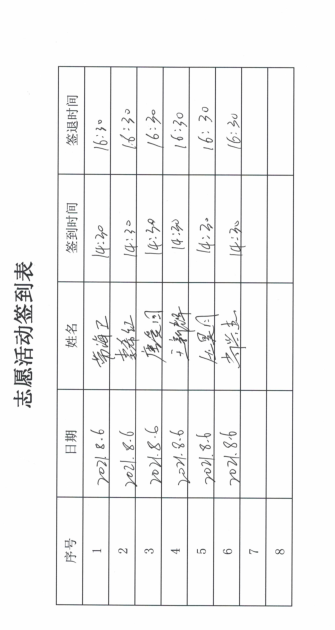 志愿活动签到表
序号 日期 姓名 签到时间 签退时间
1 2021.8.6 常海卫 14:30 16:30
2 2021.8.6 14:30 16:30
3 2021.8.6 14:30 16:30
4 2021.8.6 14:30 16:30
5 2021.8.6 14:30 16:30
6 2021.8.6 14:30 16:30
7
8